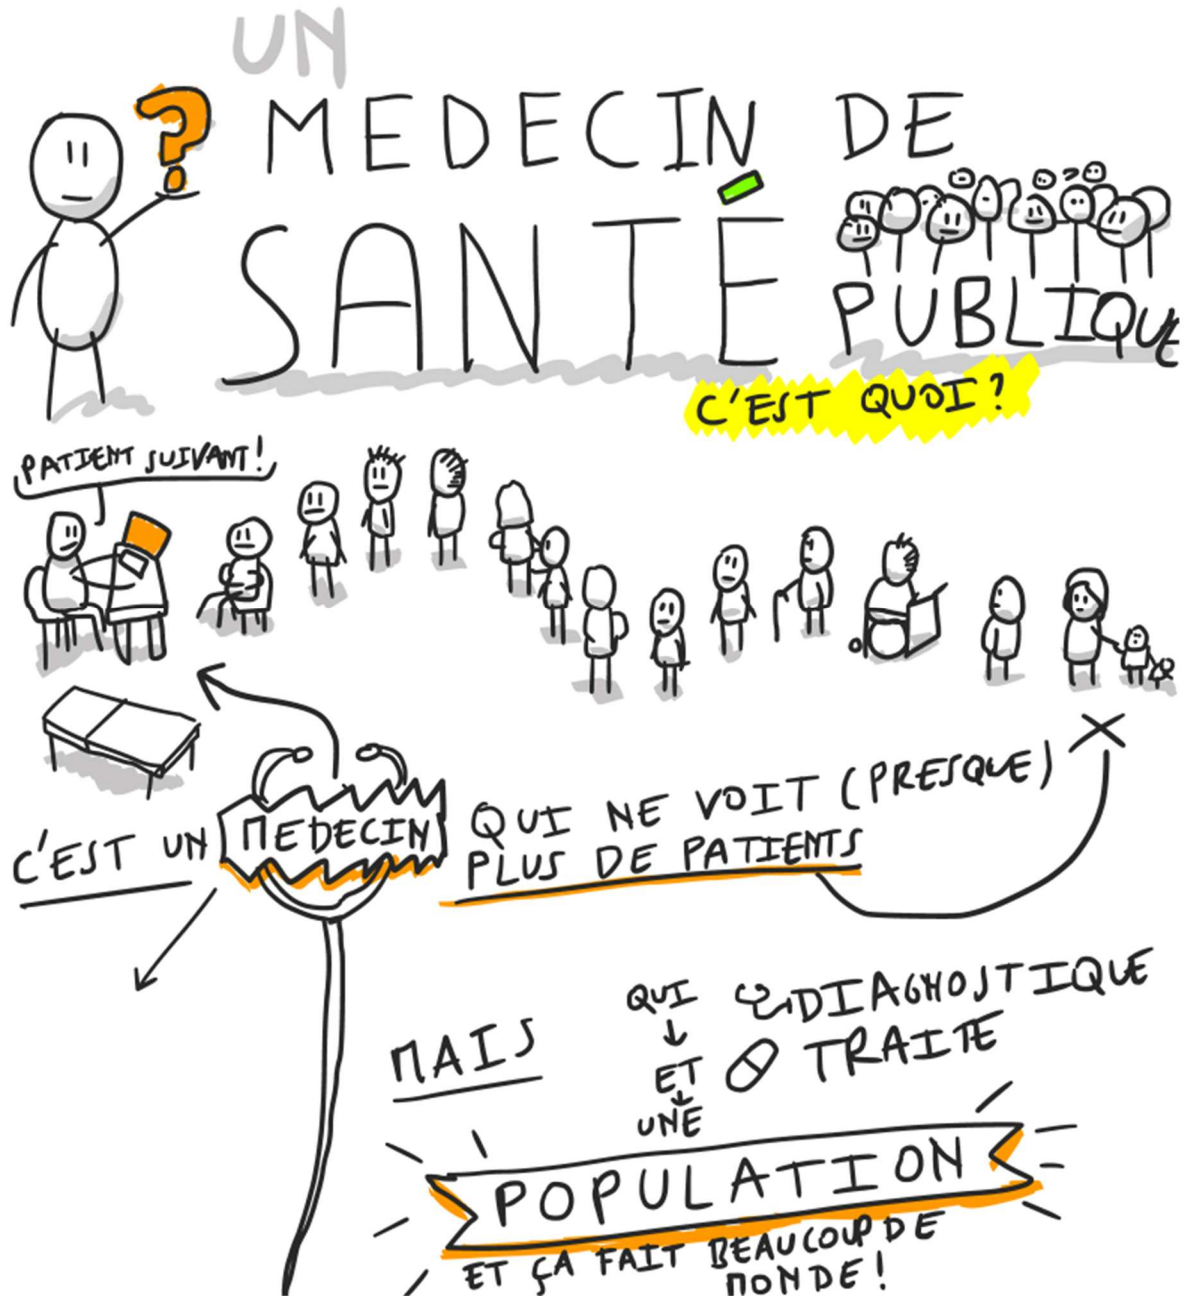 UN
MEDECIN DE
SANTÉ
PUBLIQUE
C'EST QUOI?
PATIENT SUIVANT!
C'EST UN MEDECIN QUI NE VOIT (PRESQUE)
PLUS DE PATIENTS
MAIS
QUI DIAGNOSTIQUE
ET TRAITE
UNE
POPULATION
ET ÇA FAIT BEAUCOUP DE
MONDE!